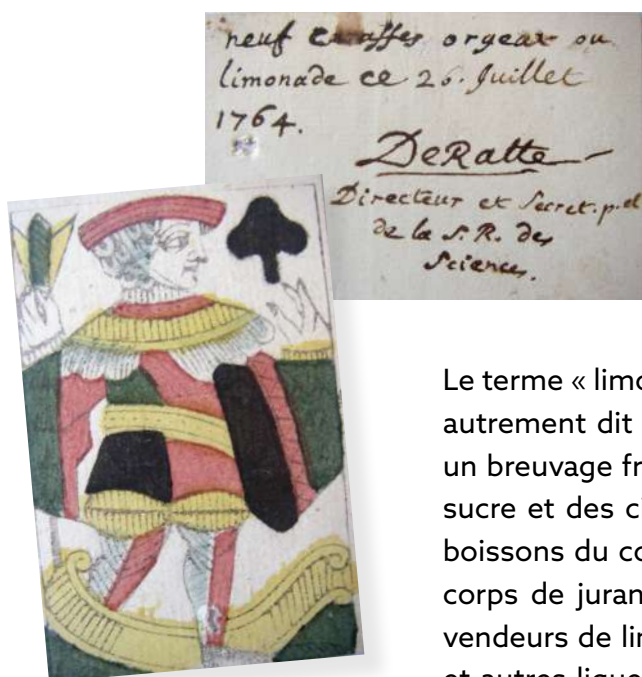 neuf caraffes orgeat ou
limonade ce 26. Juillet
1764.
DeRatte
Directeur et Secret. p.el
de la S. R. des
Sciences.
Le terme « limo
autrement dit
un breuvage fr
sucre et des c
boissons du co
corps de juran
vendeurs de li
et autres lique